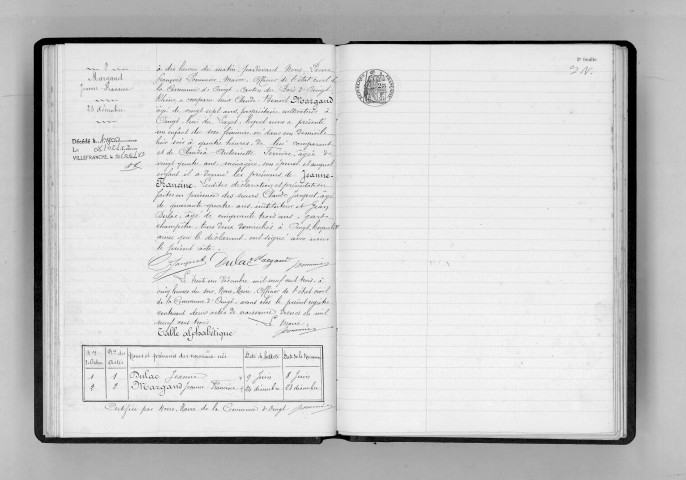 2
Margaud
Jeanne Francine
23 décembre
Décédé à
Le
VILLEFRANCHE, le
à dix heures du matin, pardevant Nous, Pierre
François Pommier, Maire, Officier de l'état civil de
la Commune d'Oingt, Canton du Bois d'Oingt,
Rhône, a comparu Claude Benoit Margaud
âgé de vingt sept ans, propriétaire cultivateur à
Oingt, lieu du Layet, lequel nous a présenté
un enfant du sexe féminin, né dans son domicile
hier soir à quatre heures, de lui comparant
et de Claudia Antoinette Ferrière, âgée de
vingt quatre ans, ménagère, son épouse et auquel
enfant il a donné les prénoms de Jeanne-
Francine. Lesdites déclaration et présentation
faites en présence des sieurs Claude Jacquet, âgé
de quarante quatre ans, instituteur et Jean
Dulac, âgé de cinquante trois ans, garde
champêtre, tous deux domiciliés à Oingt, lesquels
ainsi que le déclarant, ont signé avec nous
le présent acte.
Jacquet Dulac Margaud Pommier
Le trente un Décembre mil neuf cent trois, à
cinq heures du soir, Nous, Maire, Officier de l'état civil
de la Commune d'Oingt, avons clos le présent registre
contenant deux actes de naissance dressés en mil
neuf cent trois. Le Maire
Pommier
Table alphabétique
Nos d'Ordre Nos des Actes Noms et prénoms des nouveaux-nés Date de l'acte Date de la Naissance
1 1 Dulac Jeanne 9 Juin 8 Juin
2 2 Margaud Jeanne Francine 24 décembre 23 décembre
Certifiée par Nous, Maire de la Commune d'Oingt Pommier
2e feuille
2 N.